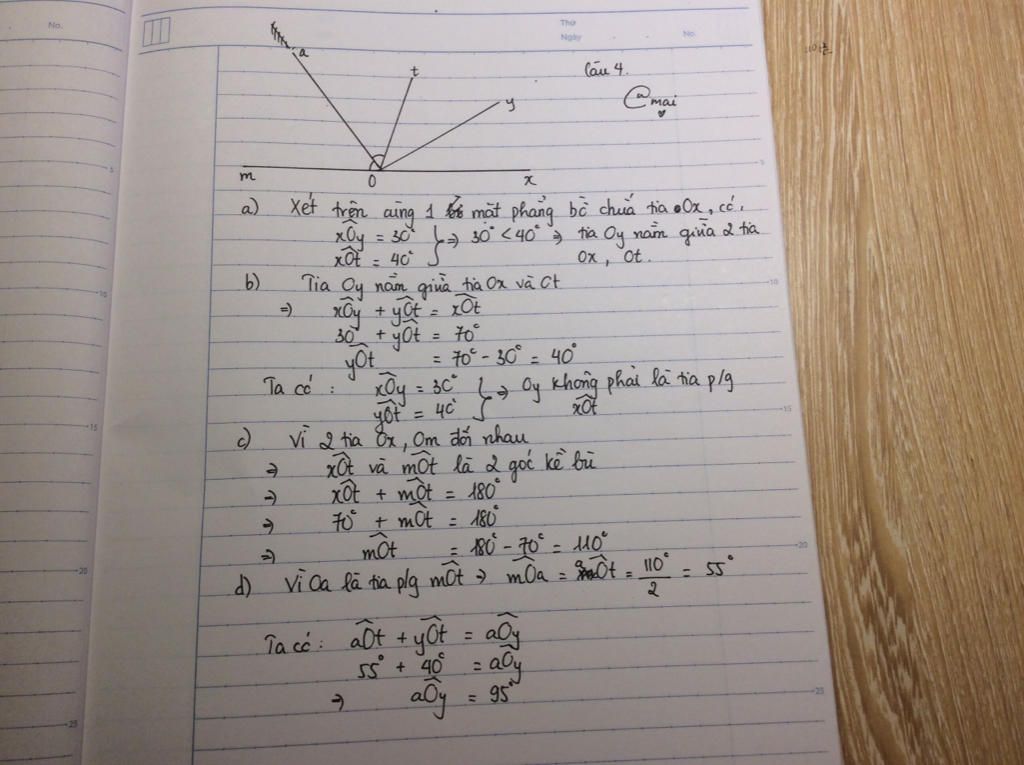 No.
Thứ
Ngày
No.
a
t
y
m
O
x
Câu 4.
@mai
a) Xét trên cùng 1 mặt phẳng bờ chứa tia Ox, có.
xOy = 30°
xOt = 40°
} => 30° < 40° => tia Oy nằm giữa 2 tia
Ox, Ot.
b) Tia Oy nằm giữa tia Ox và Ot
=> xOy + yOt = xOt
30° + yOt = 70°
yOt = 70° - 30° = 40°
Ta có : xOy = 30°
yOt = 40°
} => Oy không phải là tia p/g
xOt
c) Vì 2 tia Ox, Om đối nhau
=> xOt và mOt là 2 góc kề bù
=> xOt + mOt = 180°
=> 70° + mOt = 180°
=> mOt = 180° - 70° = 110°
d) Vì Oa là tia p/g mOt => mOa = aOt = 110°/2 = 55°
Ta có : aOt + yOt = aOy
55° + 40° = aOy
=> aOy = 95°